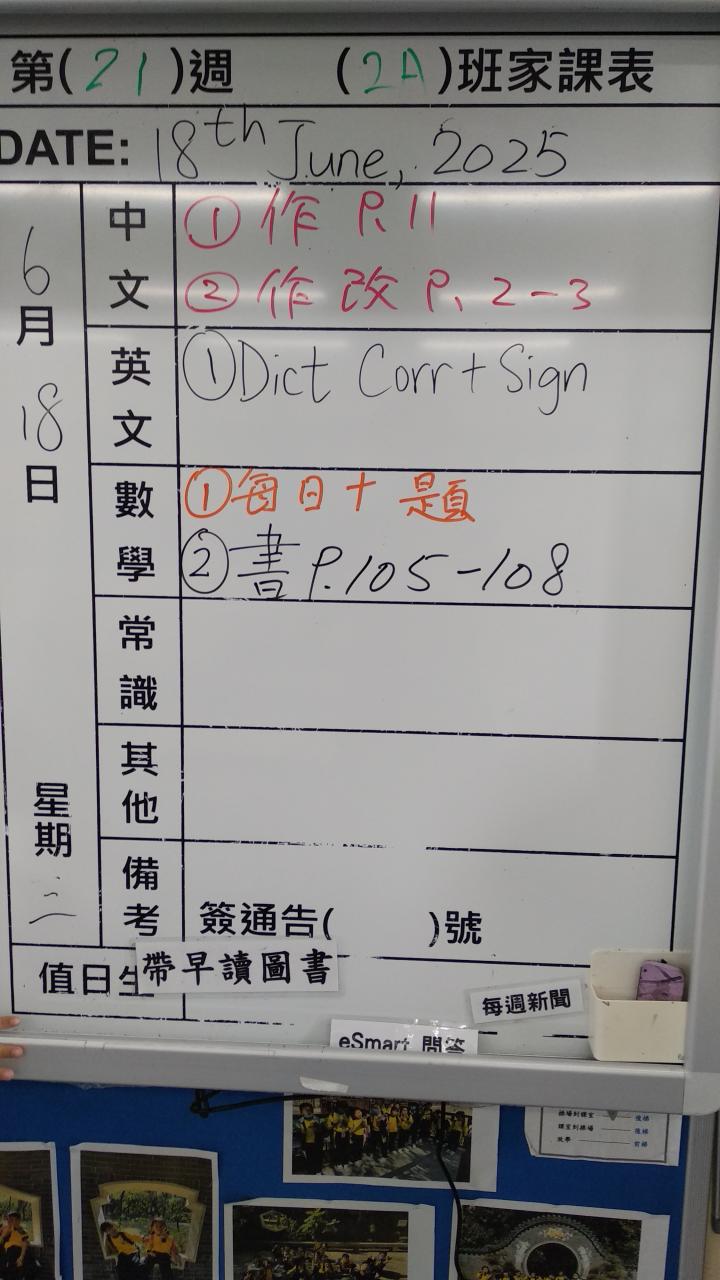 第(21)週 (2A)班家課表
DATE: 18th June, 2025
6月18日
星期三
中文
① 作 P.11
② 作改 P. 2-3
英文
① Dict Corr + Sign
數學
① 每日十題
② 書 P.105-108
常識
其他
備考
簽通告( )號
值日生
帶早讀圖書
每週新聞
eSmart 問答
操場到課室 後梯
課室到操場 後梯
放學 前梯